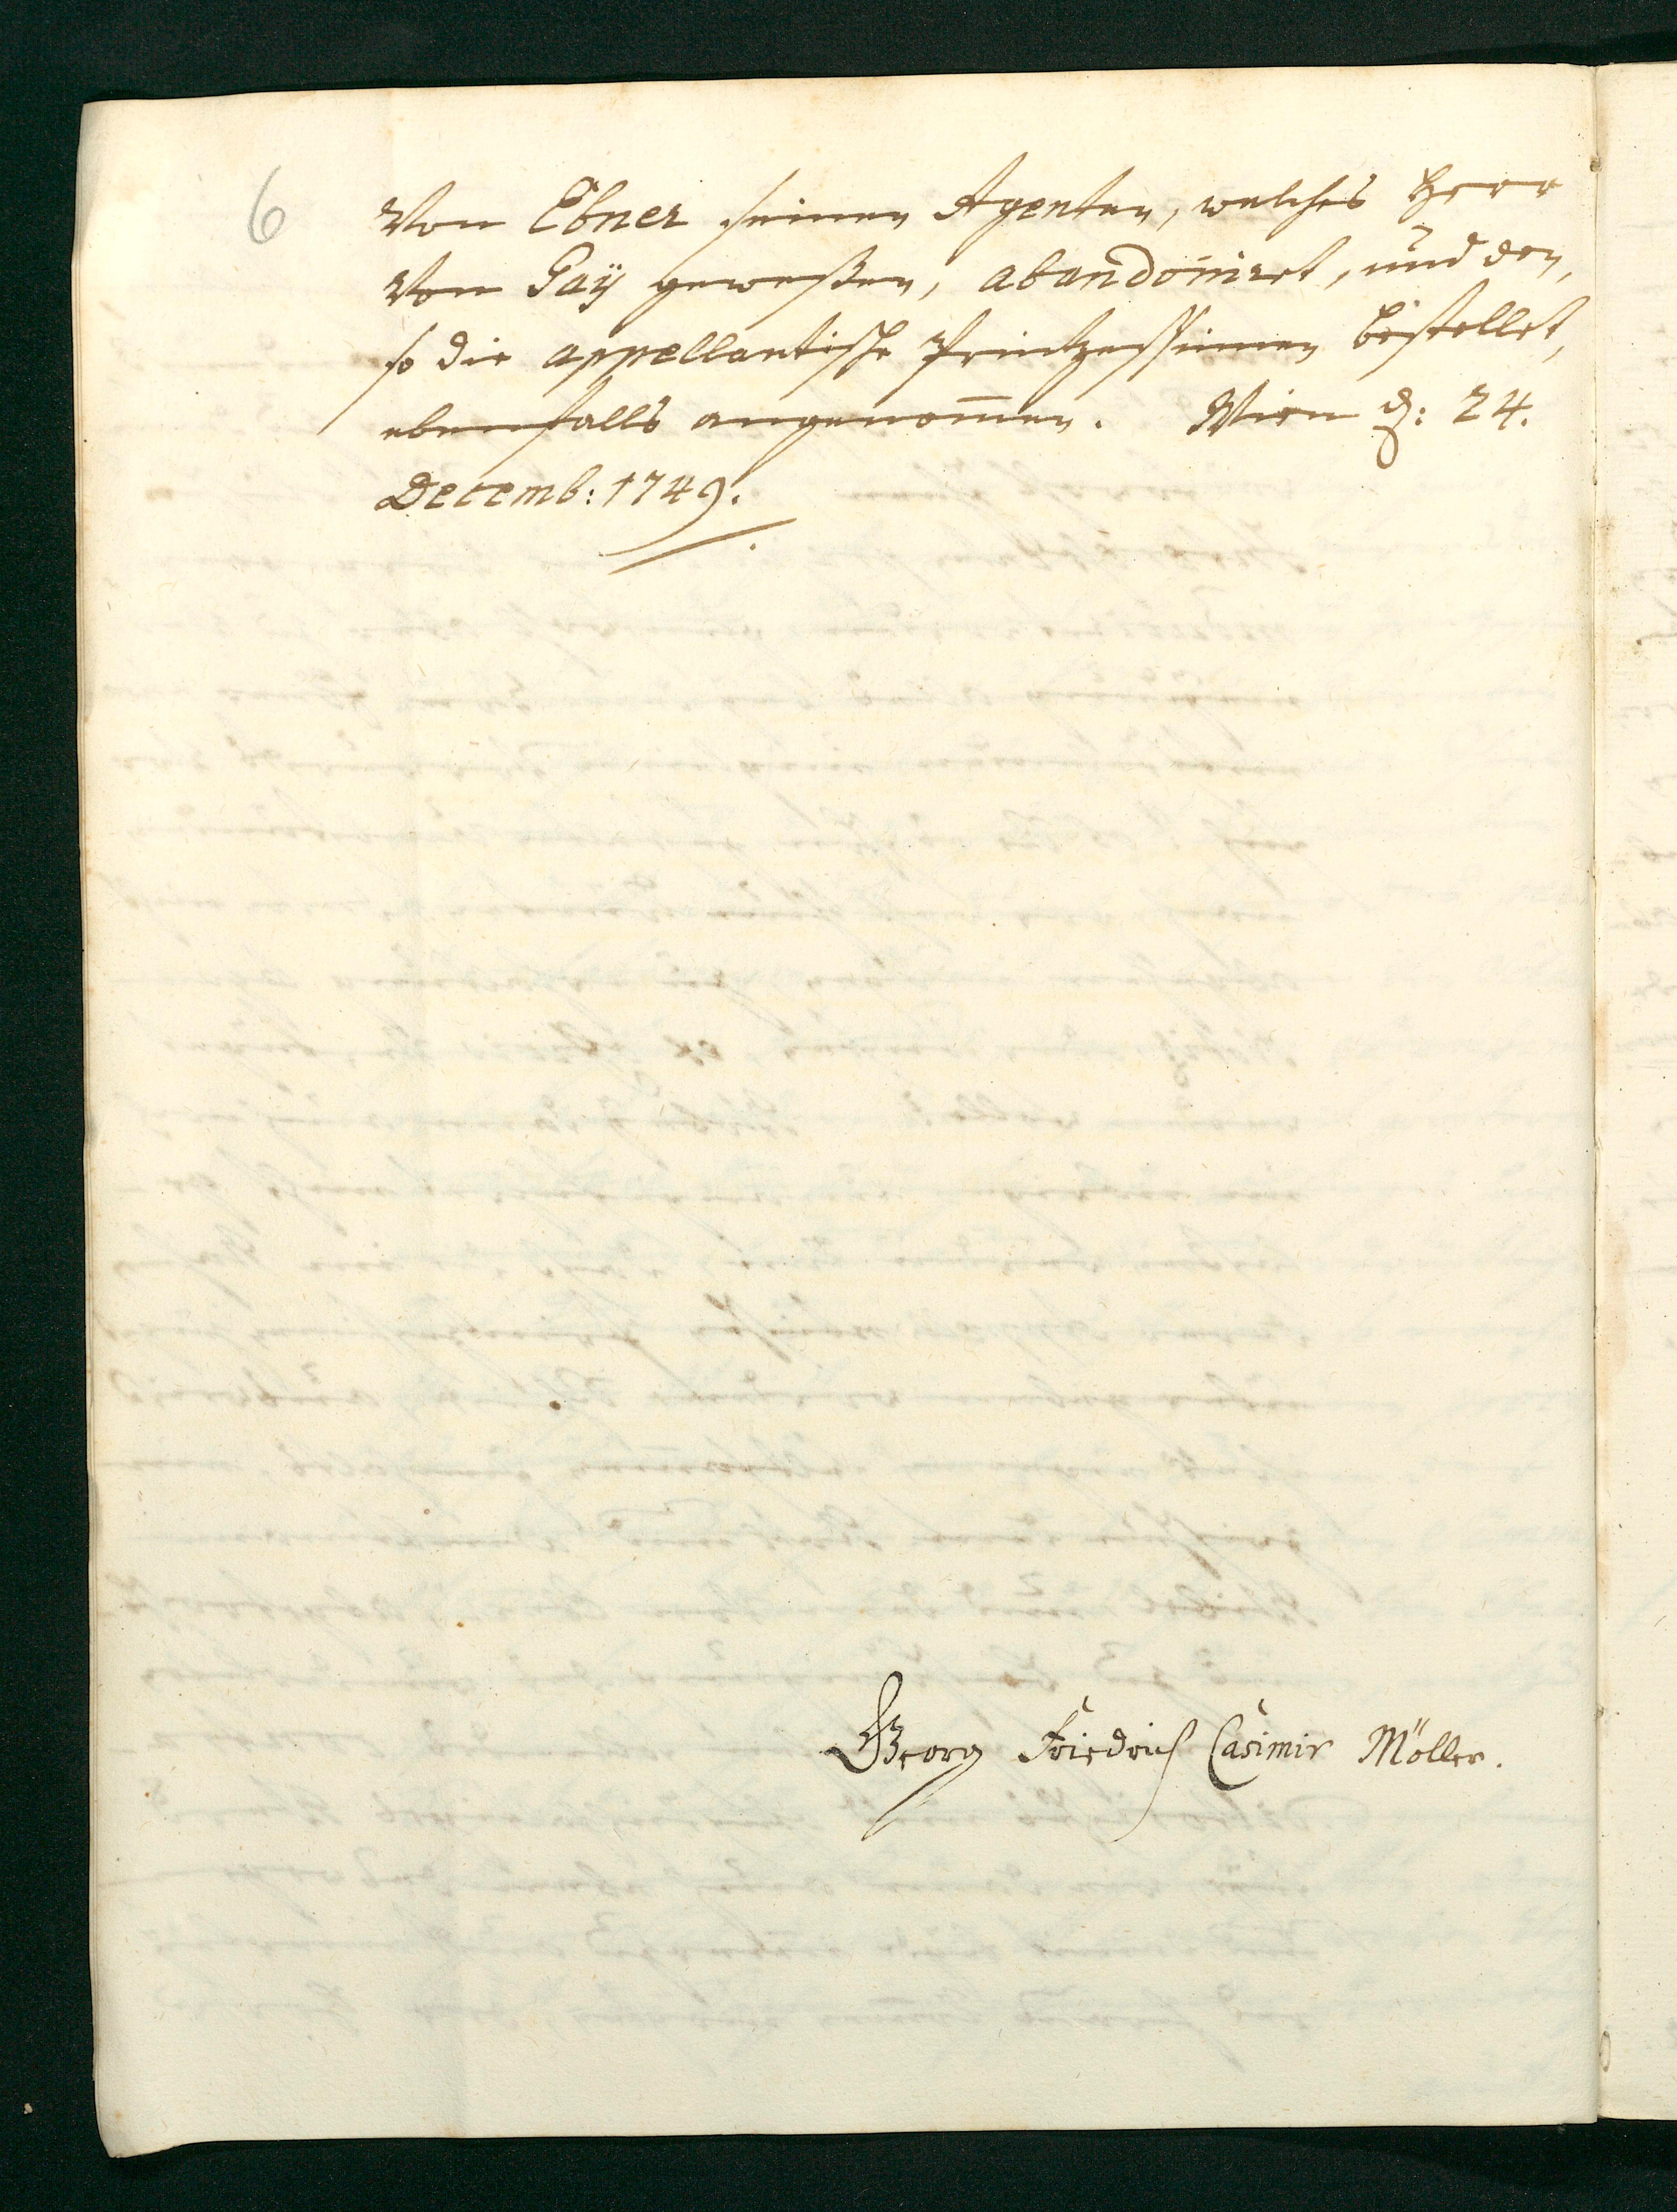 6
Von Ebner seinen Agenten, welches Herr
Von Gaÿ geweßen, abandoniret, und den,
so die appellantische Printzessinnen bestellet,
ebenfalls angenom̄en. Wien d: 24.
Decemb: 1749.
Georg Friedrich Casimir Möller.